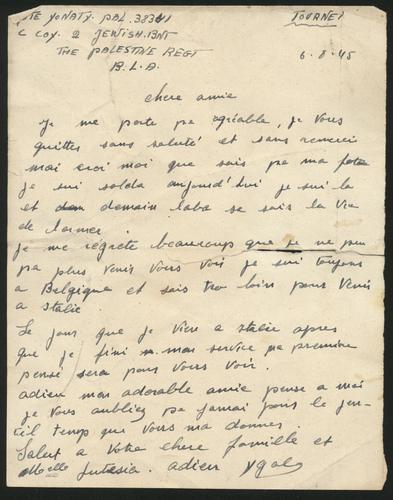 TE YONATY. PAL. 38341 TOURNEY
C COY. 2 JEWISH. BNT
THE PALESTINE REGT 6-8-45
B.L.A.
chere amie
Je me porte pa agréable, je vous
quittes sans saluté et sans remercir
mai croi moi que sais pa ma fote
Je sui solda aujourd'hui je sui la
et demain laba se sais la vie
de l'armee.
Je me regrete beaucoup que je ne peu
pa plus venir vous voir je sui toujons
a Belgique et sais tro loin pour venir
a stalie.
Le jour que je vien a stalie apres
que je fini mon service ma premire
pensé sera pour vous voir.
adieu mon adorable amie pense a moi
je vous oubliez pa jamai pour le jen-
til temps que vous ma donner.
Salut a votre chere famille et
adieu Ygal